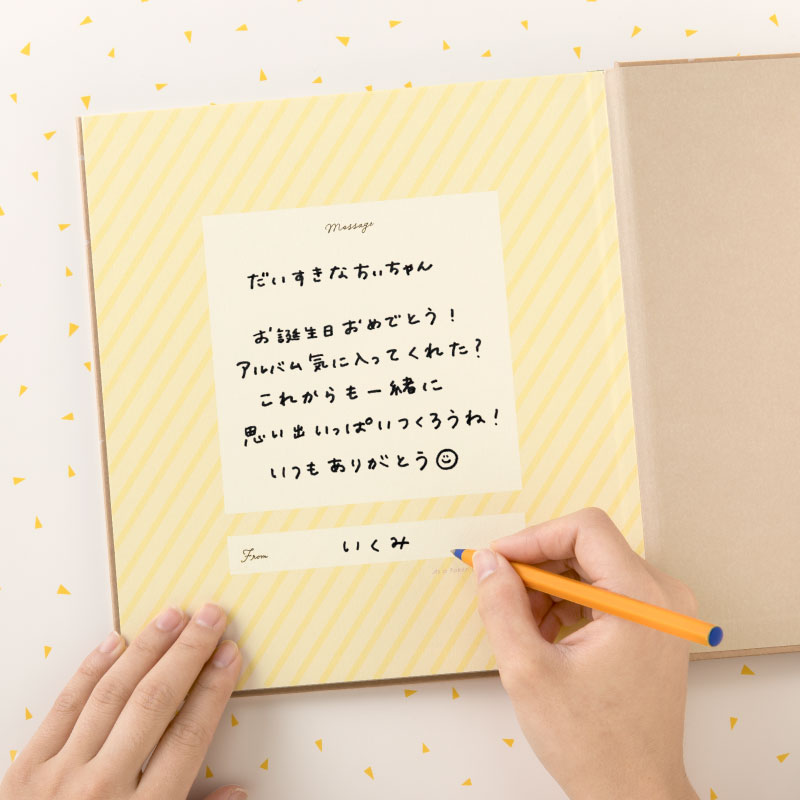 Message
だいすきなちぃちゃん
お誕生日おめでとう!
アルバム気に入ってくれた?
これからも一緒に
思い出いっぱいつくろうね!
いつもありがとう☺
From
いくみ